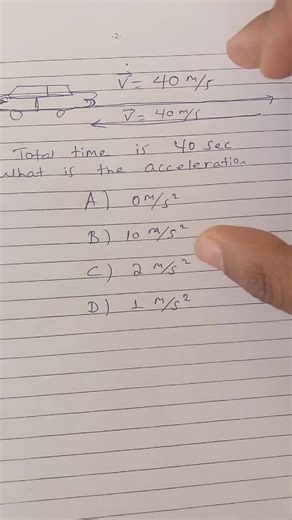 -2-
V = 40 m/s
V = 40 m/s
Total time is 40 sec
what is the acceleration
A) 0 m/s²
B) 10 m/s²
C) 2 m/s²
D) 1 m/s²